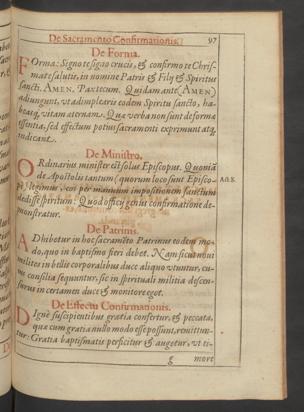 De Sacramento Confirmationis. 97
De Forma.
FOrma: Signo te signo crucis, & confirmo te Chris-
mate salutis, in nomine Patris & Filij & Spiritus
sancti. AMEN. Pax tecum. Quidam ante (AMEN)
adiungunt, vt adimplearis eodem Spiritu sancto, ha-
beasq, vitam æternam. Qua verba non sunt de forma
essentia, sed effectum potius sacramenti exprimunt atq,
indicant.
De Ministro.
ORdinarius minister est solus Episcopus. Quoniã
de Apostolis tantum (quorum loco sunt Episco-
pi) legimus, eos per manuum impositionem sanctum Act. 8.
dedisse spiritum: Quod officij genus confirmatione de-
monstratur.
De Patrinis.
ADhibetur in hoc sacramẽto Patrinus eodem mo-
do, quo in baptismo fieri debet. Nam sicut noui
milites in bellis corporalibus duce aliquo vtuntur, cu-
ius consilia sequuntur, sic in spirituali militia descen-
surus in certamen duce & monitore eget.
De Effectu Confirmationis.
DIgnè suscipientibus gratia confertur, & peccata,
qua cum gratia nullo modo esse possunt, remittun-
tur: Gratia baptismatis perficitur & augetur, vt ti-
g more